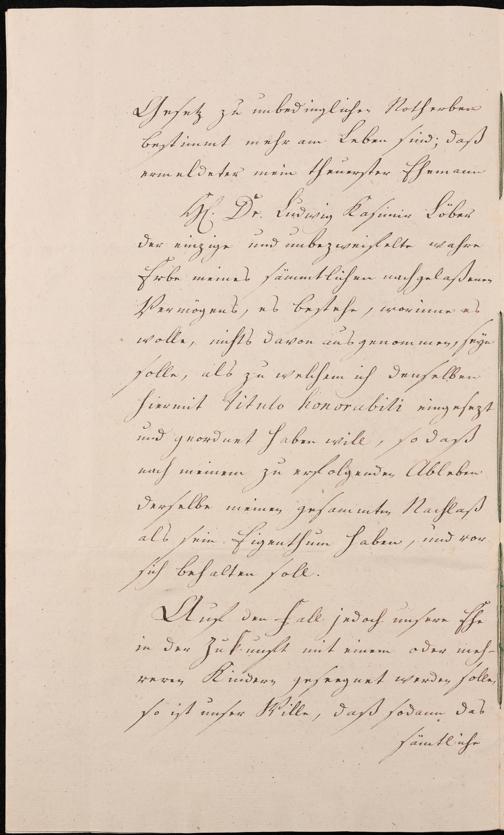 Gesetz zu unbedinglichen Notherben
bestimmt mehr am Leben sind; daß
ermeldeter mein theuerster Ehemann
H. Dr. Ludwig Kasimir Löber
der einzige und unbezweifelte wahre
Erbe meines sämmtlichen nachgelaßenen
Vermögens, es bestehe, worinne es
wolle, nichts davon ausgenommen, seyn
solle, als zu welchem ich denselben
hiermit titulo honorabili eingesezt
und geordnet haben will, so daß
nach meinem zu erfolgenden Ableben
derselbe meinen gesammten Nachlaß
als sein Eigenthum haben, und vor
sich behalten soll.
Auf den Fall jedoch unsere Ehe
in der Zukunft mit einem oder meh-
reren Kindern geseegnet werden solle,
so ist unser Wille, daß sodann das
sämtliche